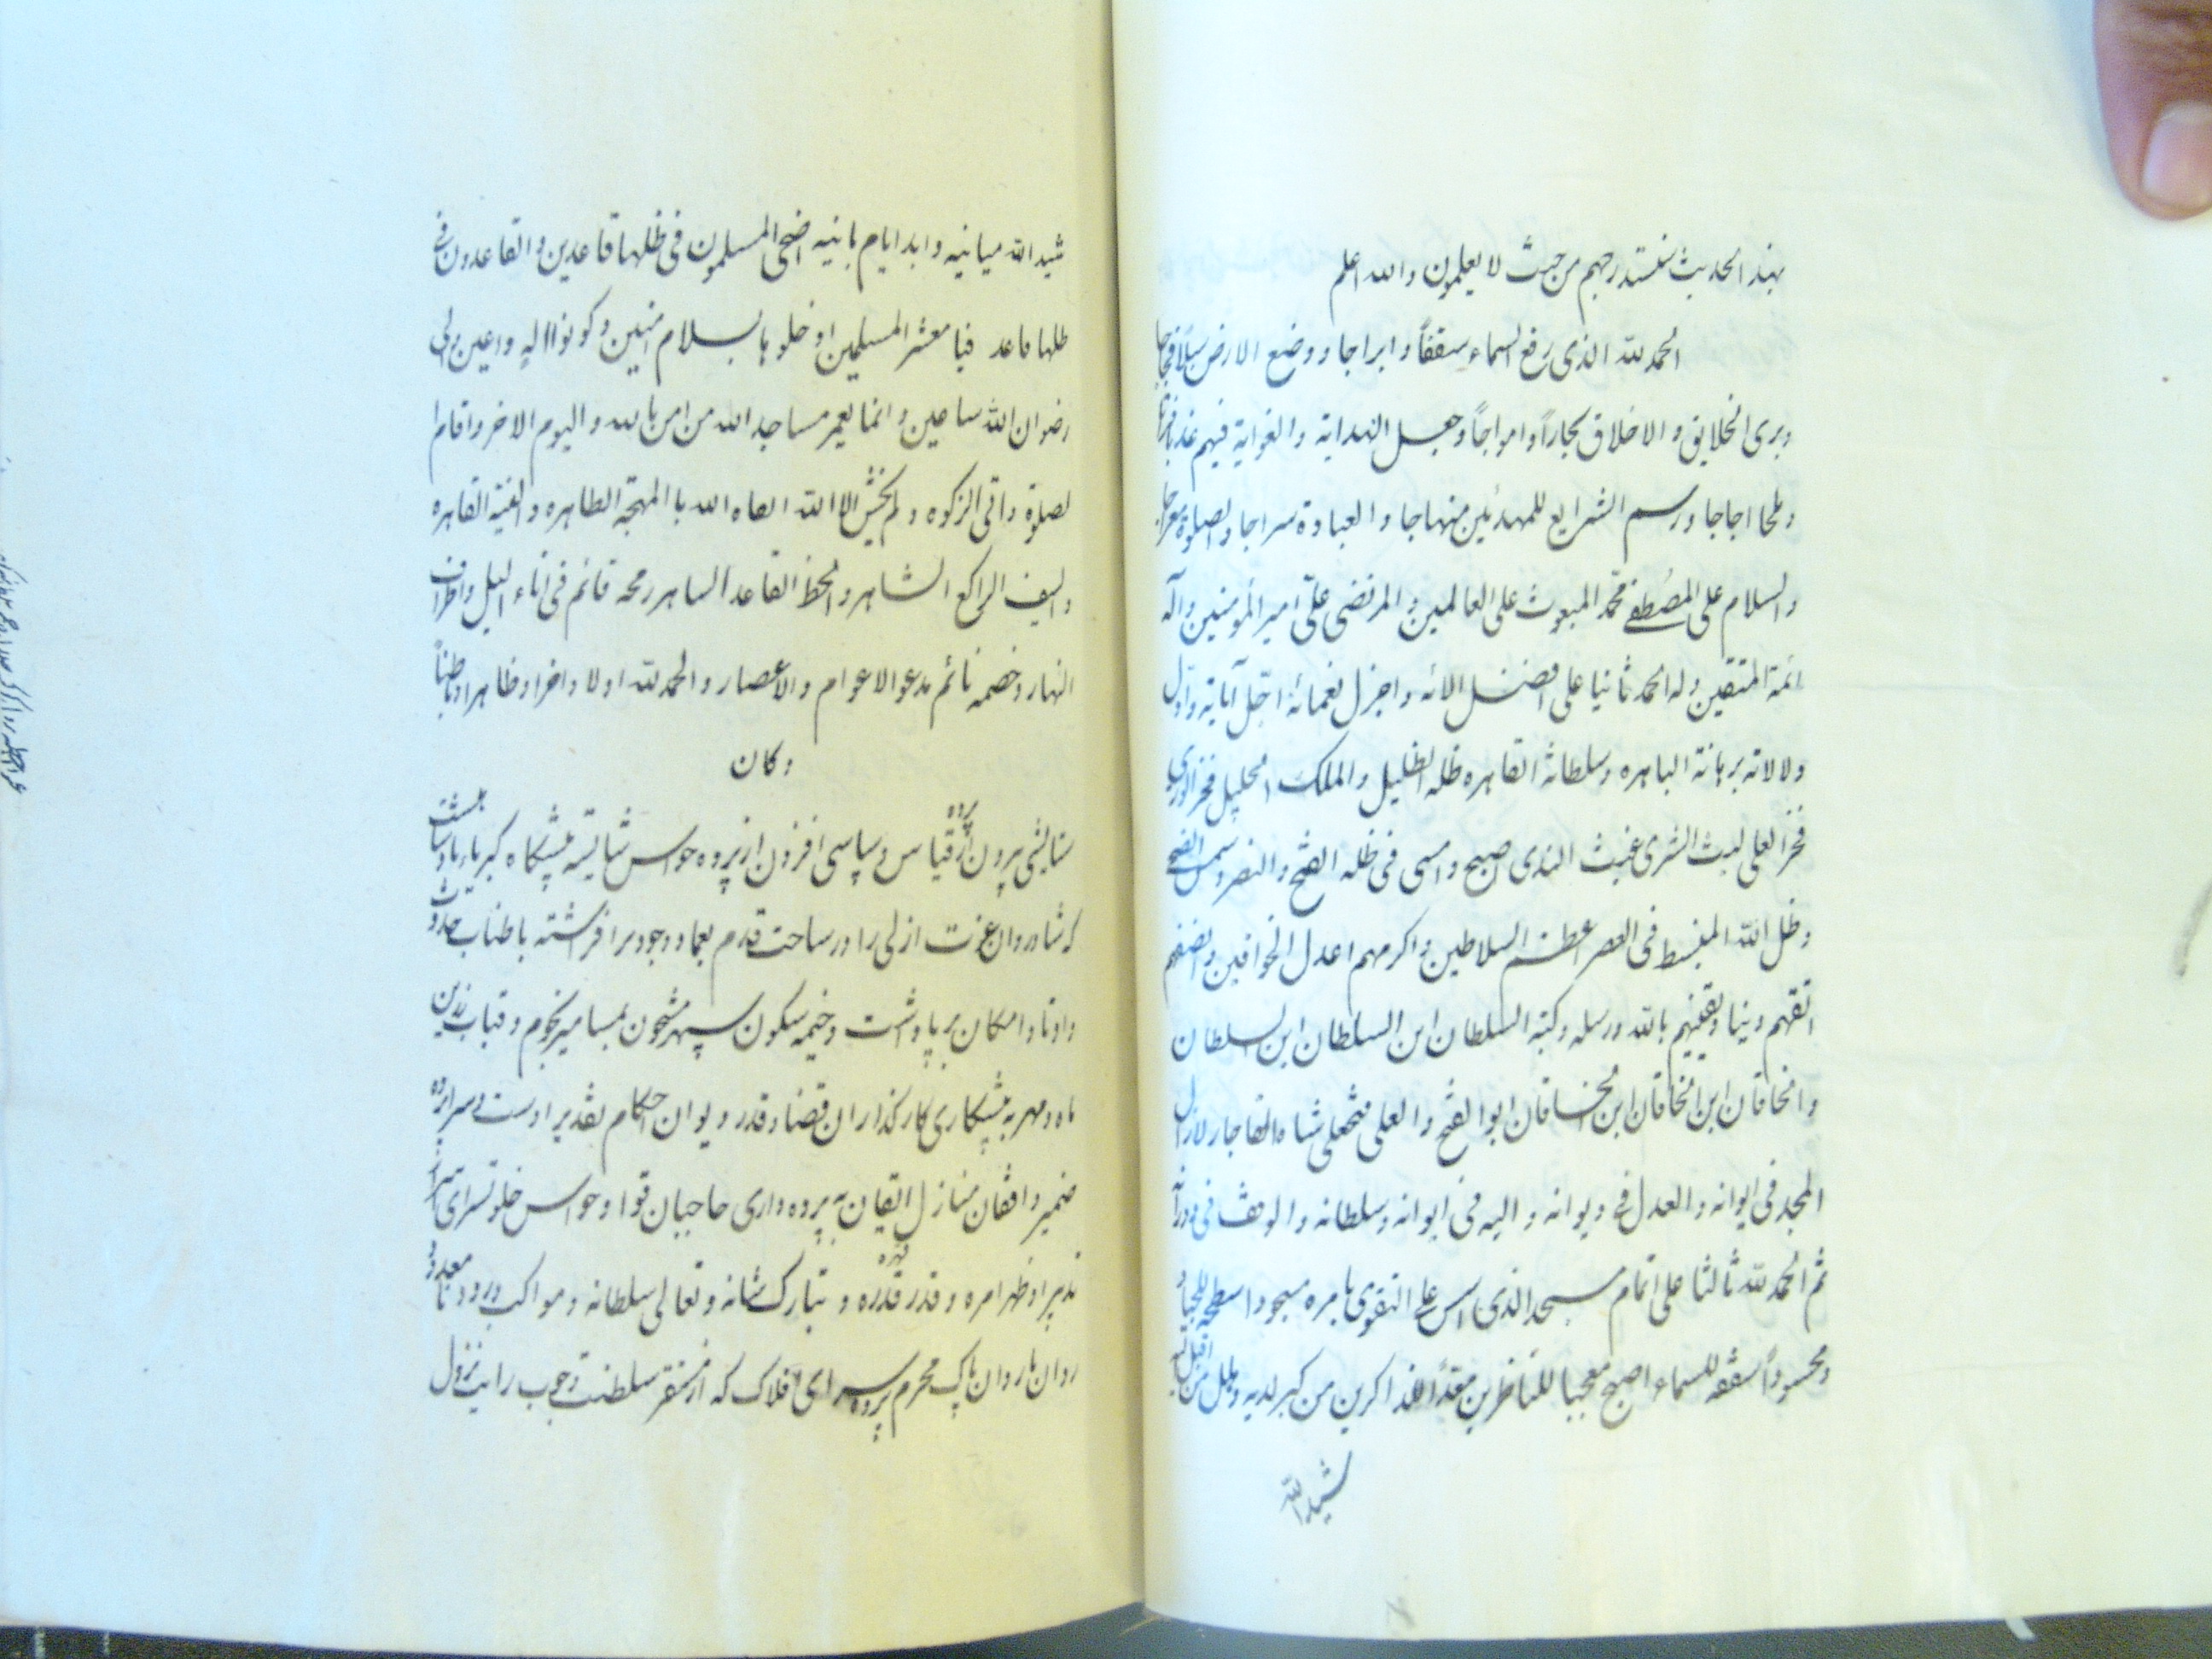 بهذا الحدیث سنستدرجهم من حیث لا یعلمون والله اعلم
الحمد لله الذی رفع السماء سقفاً و ابراجا و وضع الارض سبلاً فجاجا
و بری الخلایق و الاخلاق بحاراً و امواجاً و جعل الهدایة و الغوایة فیهم عذبا فراتا
و ملحا اجاجا و رسم الشرایع للمهدیین منهاجا و العبادة سراجا و الصلوة معراجا
و السلام علی المصطفی محمد المبعوث علی العالمین و المرتضی علیّ امیر المؤمنین و آله
ائمة المتقین و له الحمد ثانیا علی افضل الائه و اجزل نعمائه اجلّ آیاته و ادلّ
دلالاته برهانه الباهره و سلطانه القاهره ظله الظلیل و الملک الجلیل فخر الوری
فخر العلی لیث الشری غیث الندی صبح و مسی فی ظله الفتح و النصر و شمس الضحی
و ظل الله المنبسط فی العصر اعظم السلاطین و اکرمهم اعدل الخواقین و انصفهم
اتقهم دینا و یقینهم بالله و رسله و کتبه السلطان ابن السلطان ابن السلطان
و الخاقان ابن الخاقان ابن الخاقان ابو الفتح و العلی فتحعلی شاه القاجار لازال
المجد فی ایوانه و العدل فی دیوانه و الیه فی ایوانه و سلطانه و الوقف فی
ثم الحمد لله ثالثا علی اتمام مسجد الذی اسس علی التقوی بامره مسجودا سطحه للجباه
و محسوداً سقفه للسماء اصبح معجبا للناظرین من کبر لدیه و هلل من اقبل الیه
شید الله
شید الله مبانیه و ابد ایام بانیه اضحی المسلمون فی ظلها قاعدین و القاعدون فی
ظلها قاعد فیا معشر المسلمین ادخلوها بسلام امنین و کونوا الله داعین و الی
رضوان الله ساعین و انما یعمر مساجد الله من امن بالله و الیوم الاخر و اقام
لصلوة و اتی الزکوه و لم یخش الا الله ابقاه الله با المهجة الطاهره و الفئة القاهره
و السیف الراکع الشاهر و الحظ القاعد الساهر رمحه قائم فی اناء اللیل و اطراف
النهار و خصمه نائم مدعو الاعوام و الاعصار و الحمد لله اولا و اخرا و ظاهرا و باطناً
و کان
ستایشی برون از پرده قیاس و سپاسی افزون از پرده حواس شایسته پیشکاه کبریاء پادشاهیست
که شادروان عزت ازلی را در ساحت قدم بعماد وجود برافراشته باطناب حدوث
و اوتاد امکان برپا داشت و خیمه سکون سپهر مشحون بمسامیر نجوم و قباب زرین
ماه و مهر به پیشکاری کارکذاران قضا و قدر دیوان احکام تقدیر اوست و سراپرده
ضمیر واقفان منازل ایقان به پرده داری حاجبان قوا و حواس خلوتسرای
تدبیر او ظهر امره و قدر قدره قهره و تبارک شانه و تعالی سلطانه و مواکب درود نامعدود
روان با روان پاک محرم پرده سرای افلاک که از مستقر سلطنت وجوب رایت نزول